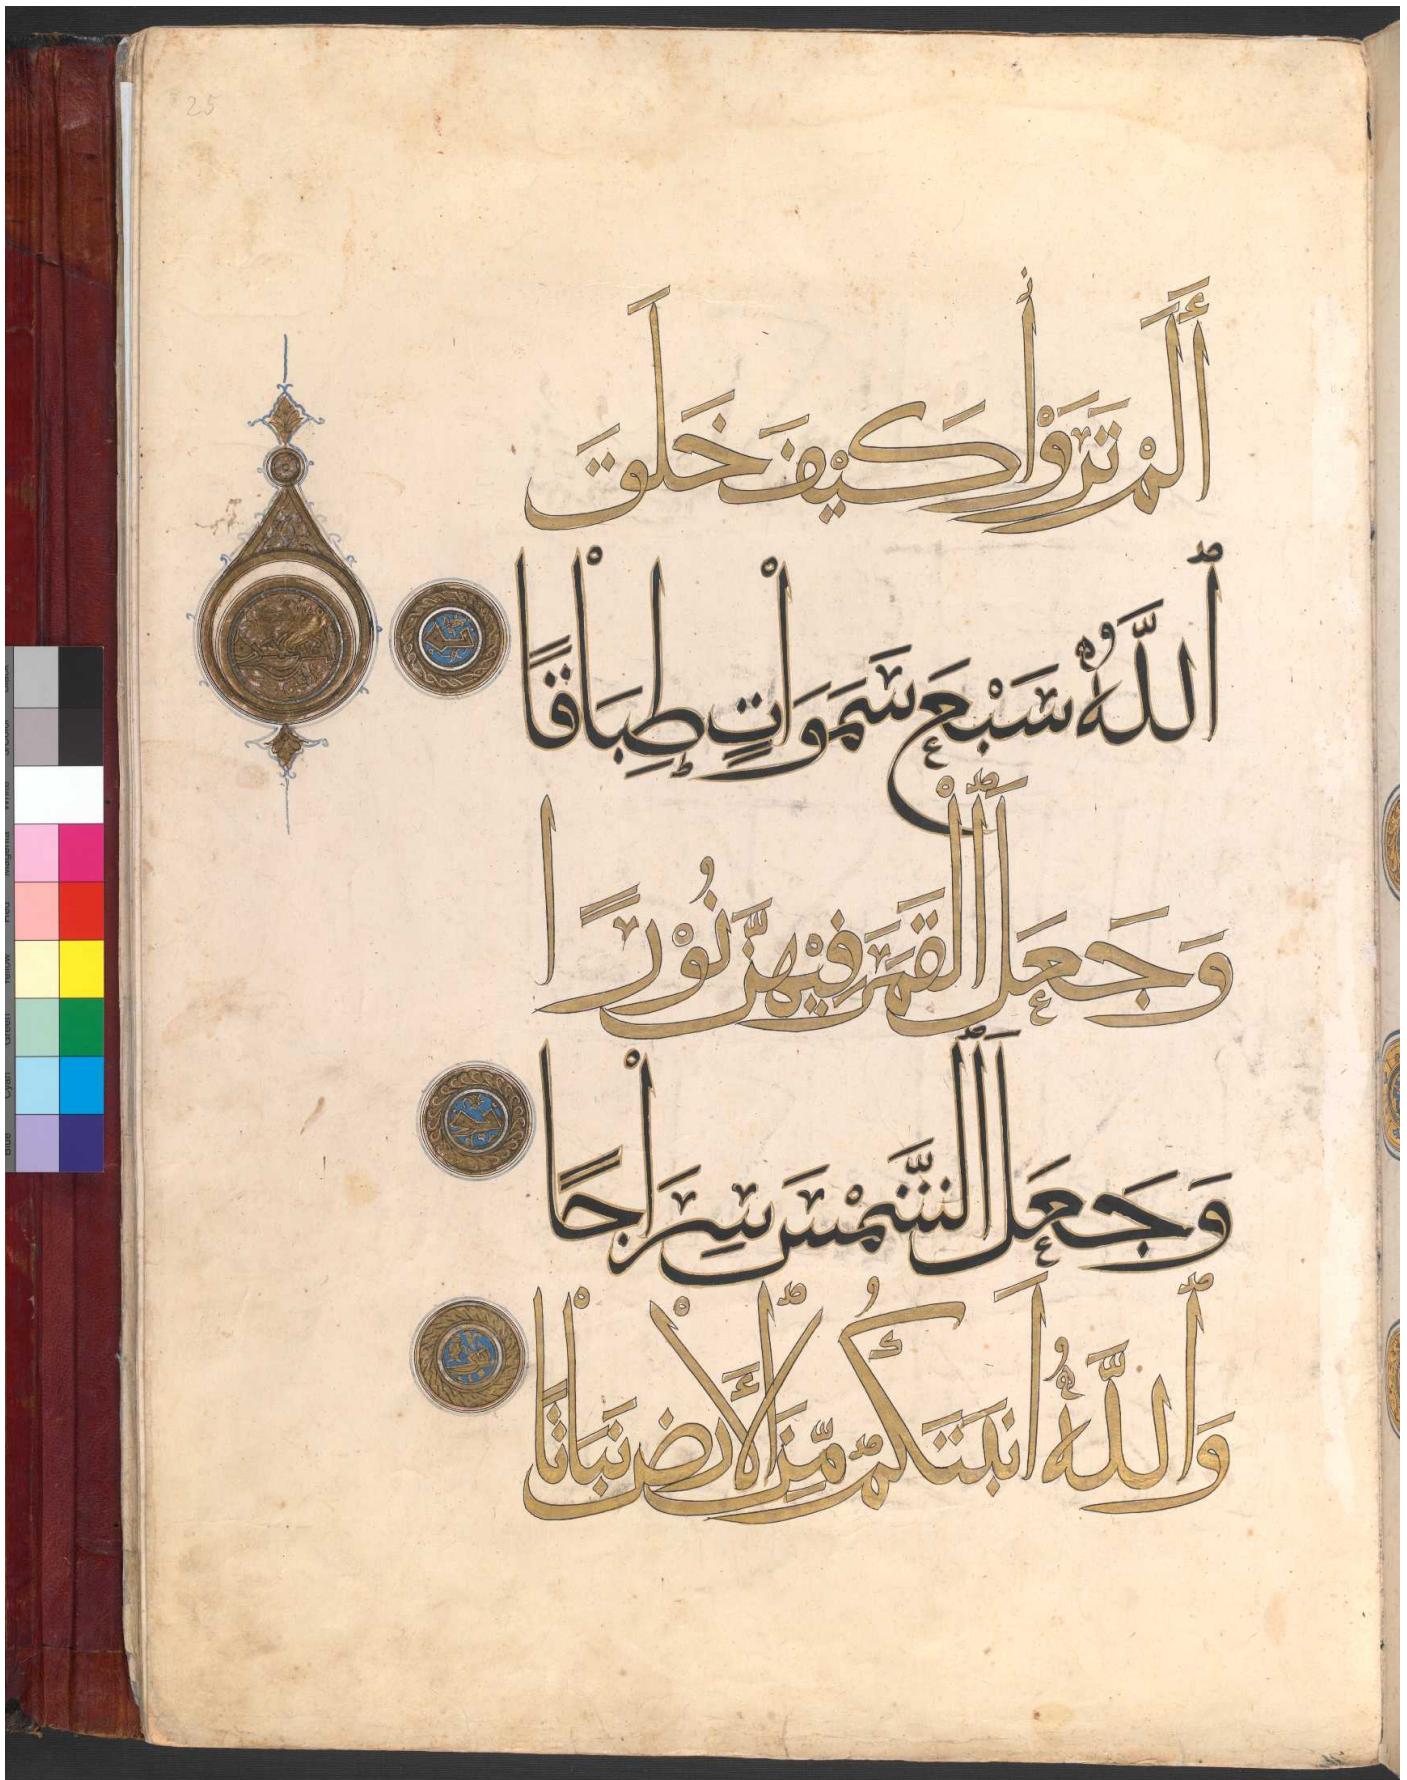 25
أَلَمْ تَرَوْاْ كَيْفَ خَلَقَ
ٱللَّهُ سَبْعَ سَمَوَاْتٍ طِبَاْقًا
وَجَعَلَ ٱلْقَمَرَ فِيْهِنَّ نُوْرًا
وَجَعَلَ ٱلشَّمْسَ سِرَاْجًا
وَٱللَّهُ أَنبَتَكُمْ مِّنَ ٱلْأَرْضِ نَبَاْتًا